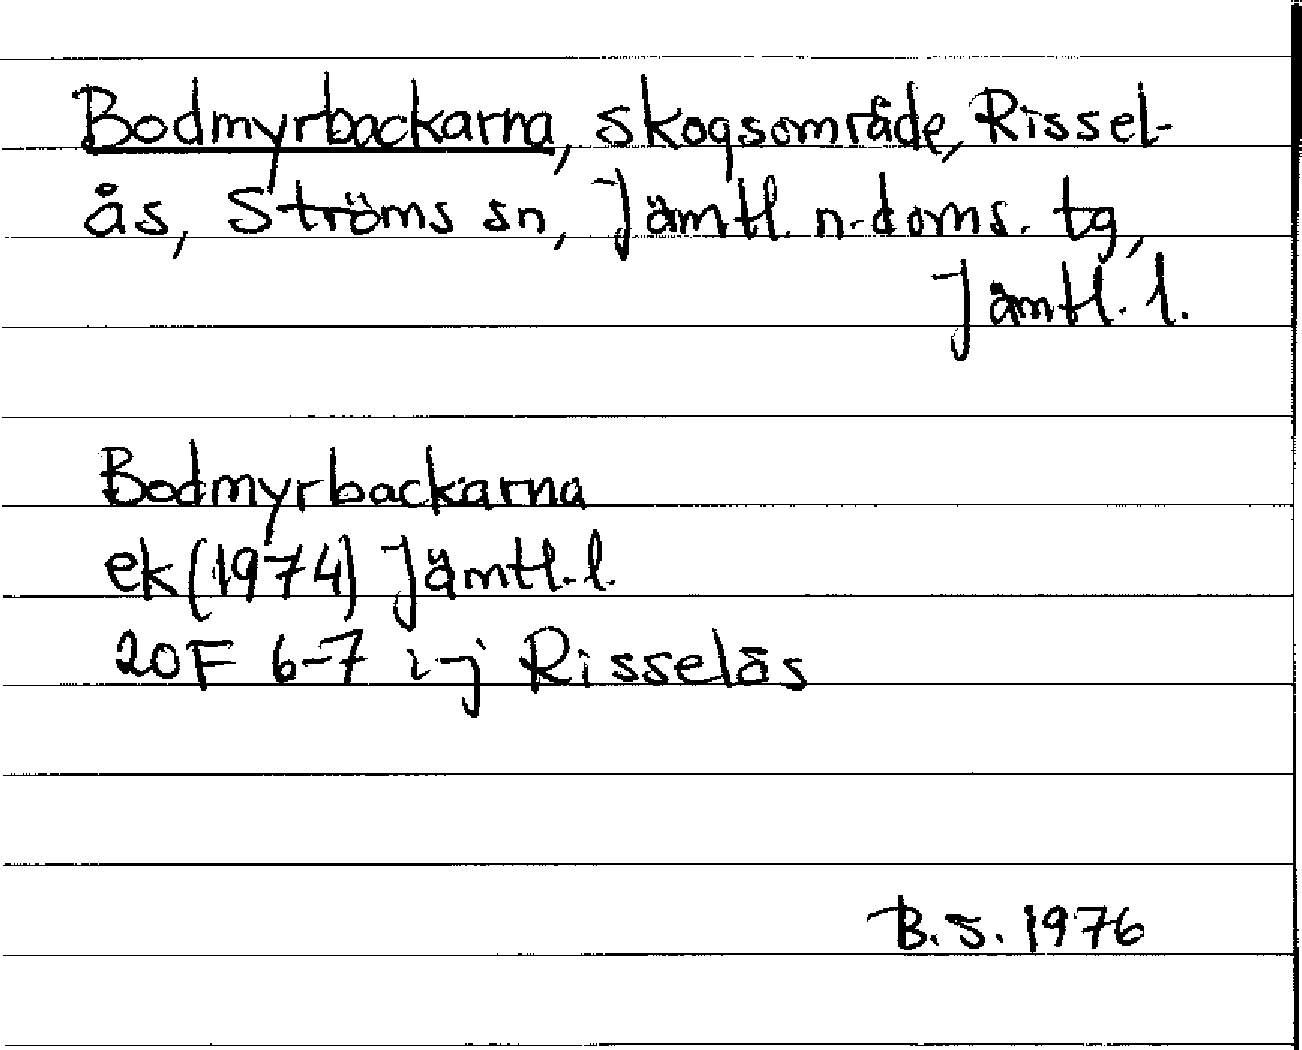 Bodmyrbackarna, skogsområde, Rissel-
ås, Ströms sn, Jämtl. n. doms. tg,
Jämtl. l.
Bodmyrbackarna
ek (1974) Jämtl. l.
20F 6-7 i-j Risselås
B.S. 1976